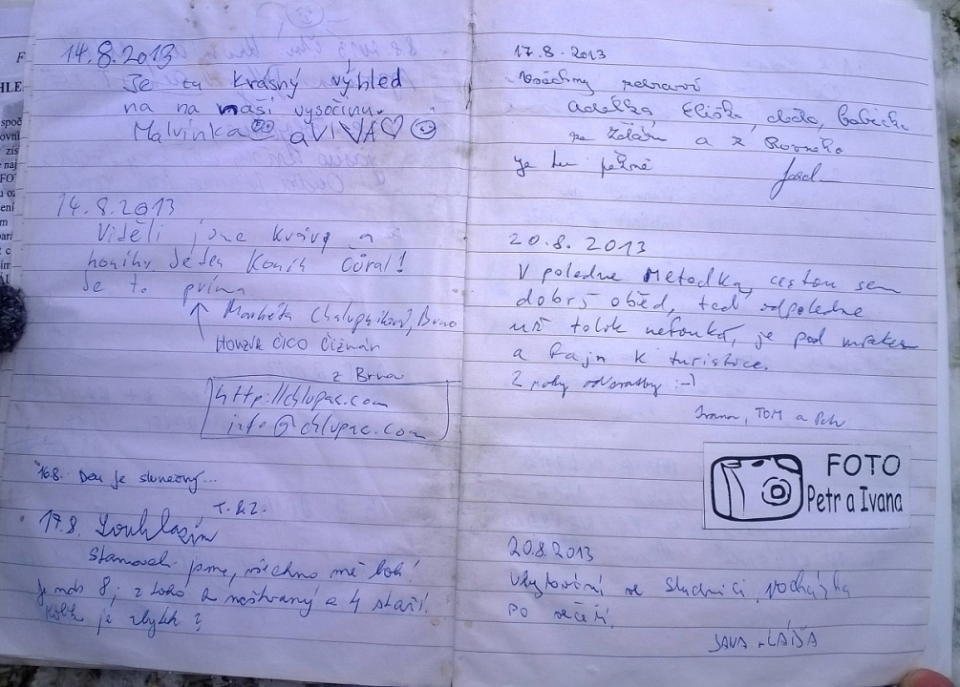 14.8.2013
Je tu krásný výhled
na na naší vysočinu.
Malvinka a VIVA
14.8.2013
Viděli jsme krávy a
koníky Jeden Koník čůral!
Je to prima
Markéta Chalupníková, Brno
Honzík ČIČO Čižmán
z Brna
http://chlupac.com
info@chlupac.com
16.8. Den je slunečný...
T.R.Z.
17.8. Souhlasím
Stanovali jsme, všechno mě bolí!
Je nás 8, z toho a 4 staří.
Kolik je zbytek?
17.8.2013
Všechny zdraví
Adélka, Eliška, děda, babička
ze Žďáru a z Rovného
je tu pěkně
20.8.2013
V poledne Metodka, cestou sem
dobrý oběd, teď odpoledne
už tolik nefouká, je pod mrakem
a fajn k turistice.
Z
Ivana, TOM a Petr
FOTO
Petr a Ivana
20.8.2013
Ubytování ve Studnici, procházka
po večeři.
JANA + LÁĎA
F
HLE
spoč
ovní
zís
naj
FO